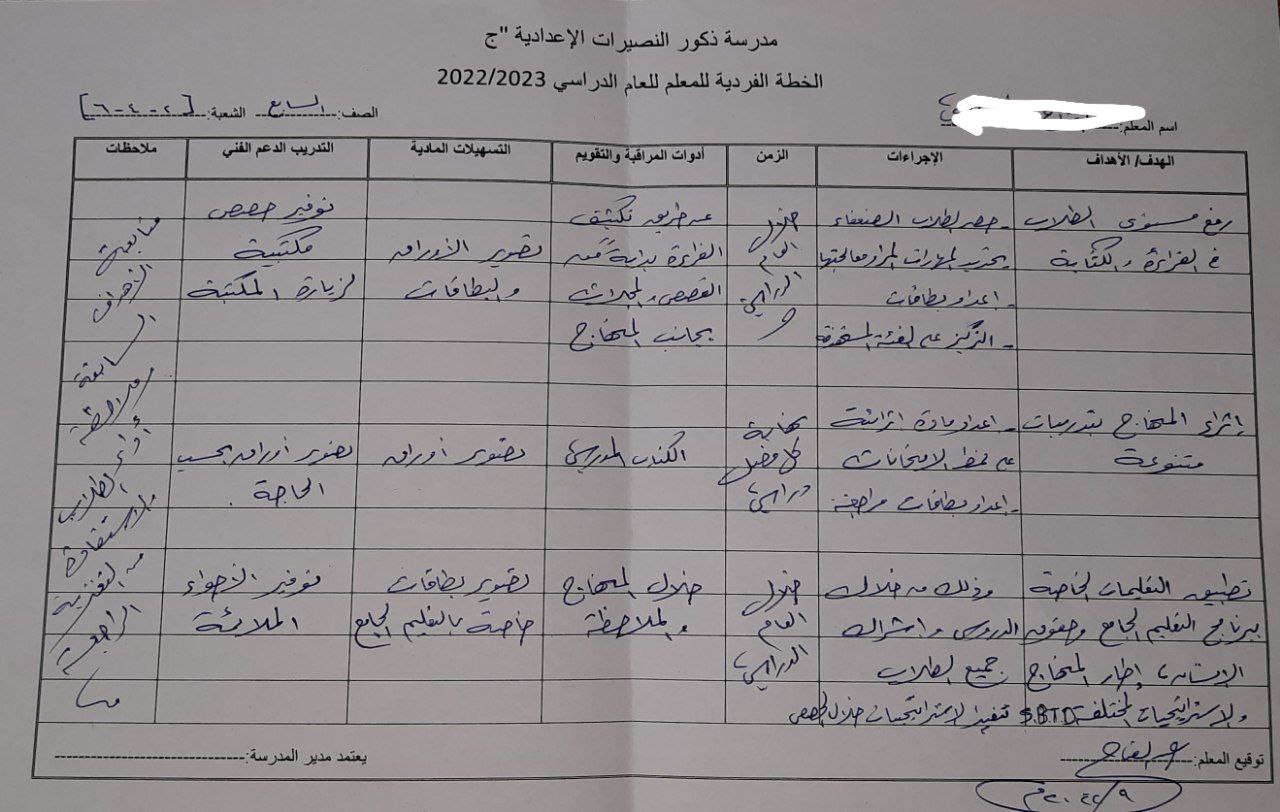 مدرسة ذكور النصيرات الإعدادية "ج
الخطة الفردية للمعلم للعام الدراسي 2022/2023
اسم المعلم:
الصف: السابع الشعبة: [٢-٤-٦]
الهدف/ الأهداف الإجراءات الزمن أدوات المراقبة والتقويم التسهيلات المادية التدريب الدعم الفني ملاحظات
رفع مستوى الطلاب
في القراءة والكتابة
- حصر الطلاب الضعفاء
- تحديد المهارات المراد معالجتها
- اعداد بطاقات
- التركيز على الفئة المستهدفة
خلال
العام
الدراسي
عن طريق تكثيف
القراءة بداية من
القصص والمجلات
بجانب المنهاج
تصوير الأوراق
والبطاقات
توفير حصص
مكتبية
لزيارة المكتبة
إثراء المنهاج بتدريبات
متنوعة
- اعداد مادة اثرائية
على نمط الامتحانات
- اعداد بطاقات مراجعة
نهاية
كل فصل
دراسي
الكتاب المدرسي
تصوير أوراق
تصوير أوراق بحسب
الحاجة.
تطبيق التعليمات الخاصة
ببرنامج التعليم الجامع وحقوق
الإنسان إطار المنهاج
والاستراتيجيات المختلفة S.BTD
وذلك من خلال
الدروس واشراك
جميع الطلاب
تنفيذ الاستراتيجيات خلال الحصص
خلال
العام
الدراسي
خلال المنهاج
والملاحظة
تصوير بطاقات
خاصة بالتعليم الجامع
توفير الأجواء
الملائمة
متابعة
الأهداف
السابقة
وملاحظة
أداء الطلاب
والاستفادة
من التغذية
الراجعة
توقيع المعلم:
يعتمد مدير المدرسة: